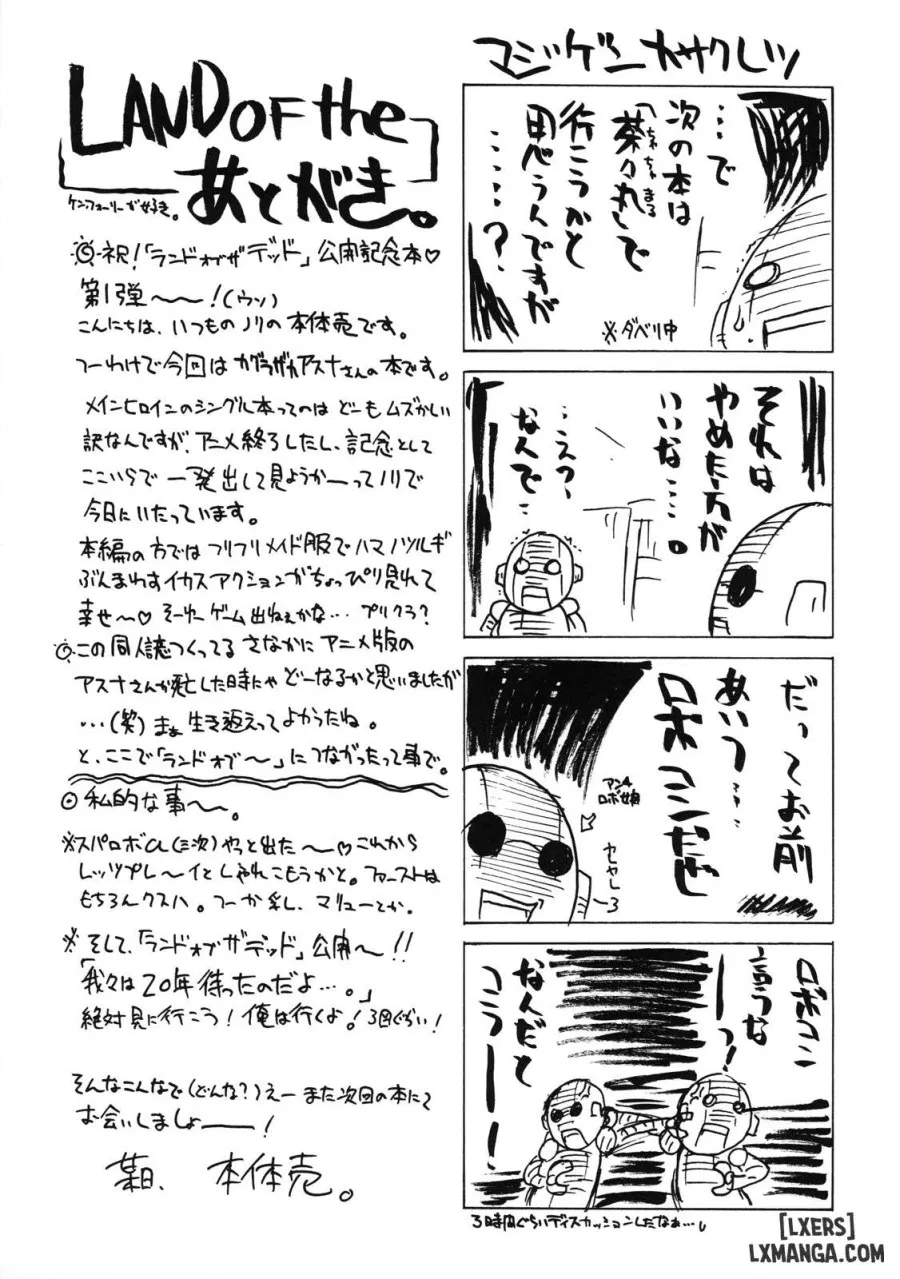 LAND OF the
あとがき。
ケンフォーリーが好き。
◎祝!「ランドオブザデッド」公開記念本♡
第1弾〜〜!(ウソ)
こんにちは、いつものノリの本体売です。
つーわけで今回はカグラザカアスナさんの本です。
メインヒロインのシングル本ってのはどーもムズかしい
訳なんですが、アニメ終了したし、記念として
ここいらで一発出して見ようかーってノリで
今日にいたっています。
本編の方ではフリフリメイド服でハマノツルギ
ぶんまわすイカスアクションがちょっぴり見れて
幸せ〜♡ そーれゲーム出ねぇかな… プリクラ?
◎この同人誌つくってるさなかにアニメ版の
アスナさんが死亡した時にゃどーなるかと思いましたが
…(笑)まぁ生き返えってよかったね。
と、ここで「ランドオブ〜」につながったって事で。
◎私的な事〜〜。
※スパロボα(三次)やっと出た〜〜♡これから
レッツプレ〜イとしゃれこもうかと。ファーストは
もちろんクスハ。つーか乳し、マリューとか。
※そして、「ランドオブザデッド」公開〜!!
「我々は20年待ったのだよ…。」
絶対見に行こう!俺は行くよ!3回ぐらい!
そんなこんなで(どんな?)えーまた次回の本にて
お会いしましょー――!
某日、 本体売。
マジゲンカサクレツ
…で
次の本は
「茶々丸」で
ちゃちゃまる
行こうかと
思うんですが
……?
※ダベリ中
それは
やめた方が
いいな…。
…えっ、
なんで…
だってお前
あいつ…
ロボコンだぜ
アンチ
ロボ娘
セヤレーろ
ロボコン
言うな
ーっ!
なんだと
コラーーー!
3時間ぐらいディスカッションしたなぁ…。
[LXERS]
LXMANGA.COM